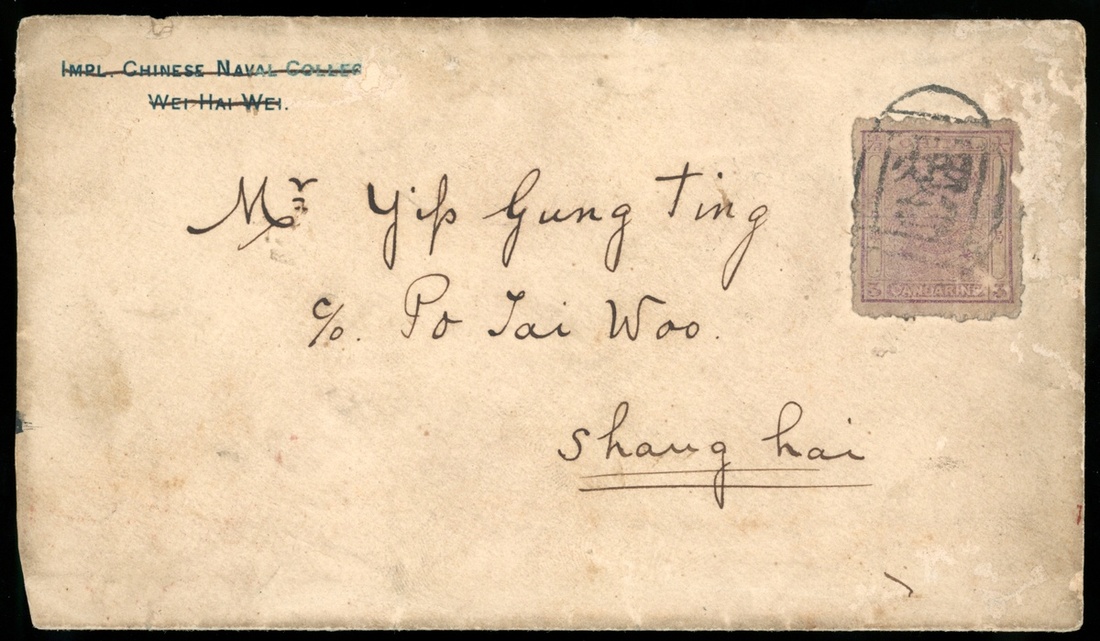 IMPL. CHINESE NAVAL COLLEG
WEI HAI WEI.
Mr Yip Gung Ting
c/o. Po Tai Woo.
Shang hai
3 CANDARINS 3